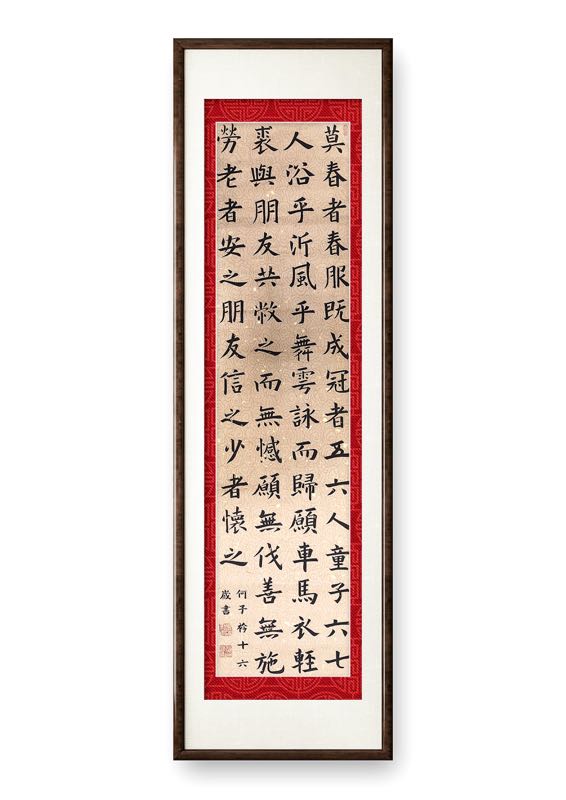 莫春者春服既成冠者五六人童子六七
人浴乎沂風乎舞雩詠而歸願車馬衣輕
裘與朋友共敝之而無憾願無伐善無施
勞老者安之朋友信之少者懷之
何子十六
歲書